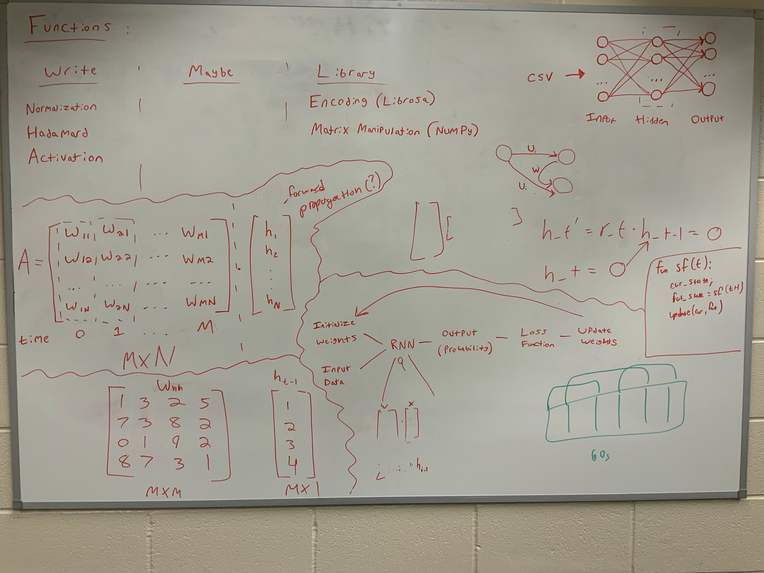 Functions:
Write Maybe Library
Normalization
Hadamard
Activation
Encoding (Librosa)
Matrix Manipulation (NumPy)
CSV →
...
...
...
Input Hidden Output
U
W
U
forward
propagation(?)
A =
W11 W21 ... WM1
W12 W22 ... WM2
... ... ...
W1N W2N ... WMN
h1
h2
:
hN
time 0 1 ... M
MXN
h_t' = r_t · h_t-1 = 0
h_t = 0
fun sf(t):
cur_state;
fut_state = sf(t+1)
update(cur, fut)
Initialize
weights
Input
Data
RNN
Output
(Probability)
Loss
Function
Update
Weights
Whh
1 3 2 5
7 3 8 2
0 1 9 2
8 7 3 1
MXM
ht-1
1
2
3
4
MX1
60s